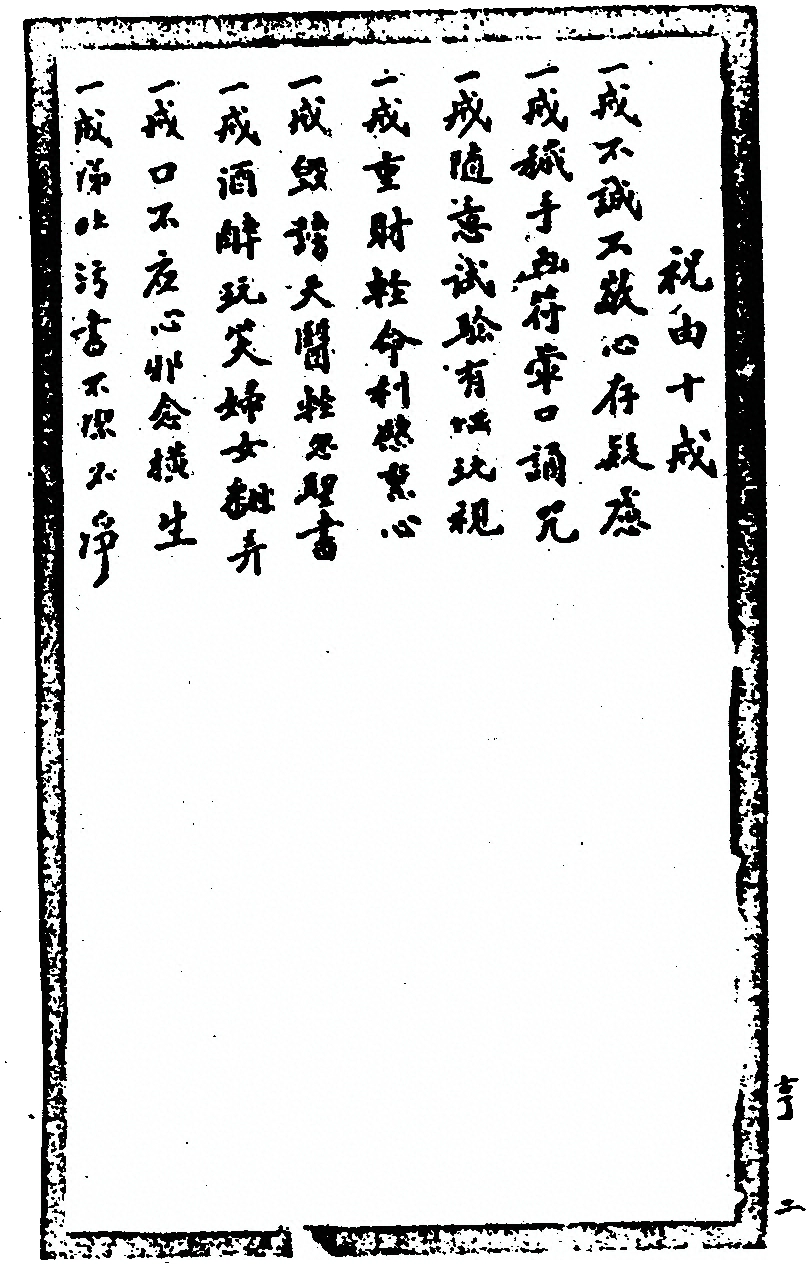 祝由十戒
一戒不誠不敬心存疑慮
一戒穢手畫符葷口誦咒
一戒隨意試驗有心玩視
一戒重財輕命利慾熏心
一戒毀謗天醫輕忽聖書
一戒酒醉玩笑婦女翻弄
一戒口不應心邪念橫生
一戒涕吐污書不潔不淨
亨 二